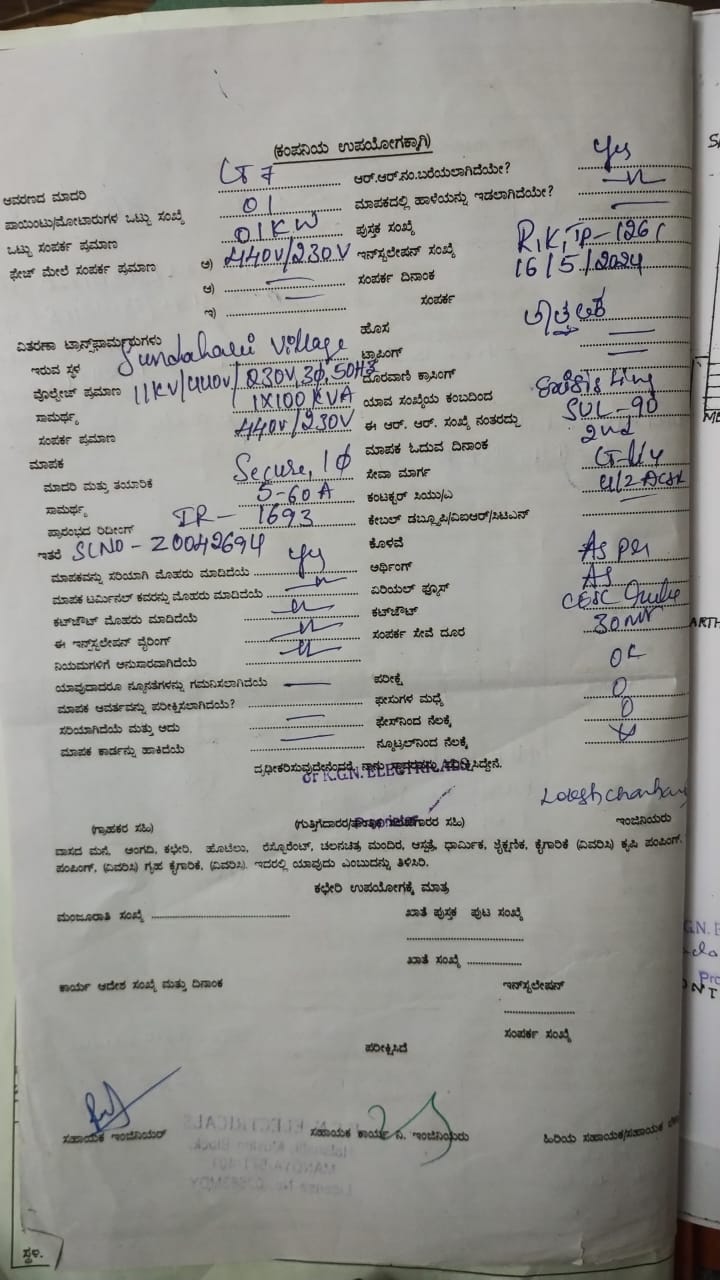 (ಕಂಪನಿಯ ಉಪಯೋಗಕ್ಕಾಗಿ)
ಆವರಣದ ಮಾದರಿ LT 7 ಆರ್.ಆರ್.ನಂ.ಬರೆಯಲಾಗಿದೆಯೇ? Yes
ಪಾಯಿಂಟು/ಮೋಟಾರುಗಳ ಒಟ್ಟು ಸಂಖ್ಯೆ 01 ಮಾಪಕದಲ್ಲಿ ಹಾಳೆಯನ್ನು ಇಡಲಾಗಿದೆಯೇ? —〃—
ಒಟ್ಟು ಸಂಪರ್ಕ ಪ್ರಮಾಣ 01KW ಪುಸ್ತಕ ಸಂಖ್ಯೆ —
ಫೇಜ್ ಮೇಲೆ ಸಂಪರ್ಕ ಪ್ರಮಾಣ ಅ) 440V/230V ಇನ್‌ಸ್ಟಲೇಷನ್ ಸಂಖ್ಯೆ
ಆ) — ಸಂಪರ್ಕ ದಿನಾಂಕ 16/5/2024
ಇ) — ಸಂಪರ್ಕ
ವಿತರಣಾ ಟ್ರಾನ್ಸ್‌ಫಾರ್ಮರುಗಳು ಹೊಸ
ಇರುವ ಸ್ಥಳ Sundahalli Village ಟ್ರಾಸಿಂಗ್ —
ವೊಲ್ಟೇಜ್ ಪ್ರಮಾಣ 11KV/440V/230V,3Ø,50HZ ದೂರವಾಣಿ ಕ್ರಾಸಿಂಗ್ —
ಸಾಮರ್ಥ್ಯ 1X100KVA ಯಾವ ಸಂಖ್ಯೆಯ ಕಂಬದಿಂದ
ಸಂಪರ್ಕ ಪ್ರಮಾಣ 440V/230V ಈ ಆರ್. ಆರ್. ಸಂಖ್ಯೆ ನಂತರದ್ದು SUL-90
ಮಾಪಕ ಮಾಪಕ ಓದುವ ದಿನಾಂಕ 2nd
ಮಾದರಿ ಮತ್ತು ತಯಾರಿಕೆ Secure, 1Ø ಸೇವಾ ಮಾರ್ಗ
ಸಾಮರ್ಥ್ಯ 5-60A ಕಂಟಕ್ಟರ್ ಸಿಯು/ಎ
ಪ್ರಾರಂಭದ ರಿಡೀಂಗ್ IR- 1693 ಕೇಬಲ್ ಡಬ್ಲ್ಯೂಪಿ/ವಿಐಆರ್/ಸಿಟಿಎನ್
ಇತರೆ SLNO - Z0042694 ಕೊಳವೆ
ಮಾಪಕವನ್ನು ಸರಿಯಾಗಿ ಮೊಹರು ಮಾಡಿದೆಯೆ Yes ಅರ್ಥಿಂಗ್ As per
ಮಾಪಕ ಟರ್ಮಿನಲ್ ಕವರನ್ನು ಮೊಹರು ಮಾಡಿದೆಯೆ —〃— ಏರಿಯಲ್ ಫ್ಯೂಸ್
ಕಟ್‌ಔಟ್ ಮೊಹರು ಮಾಡಿದೆಯೆ —〃— ಕಟ್‌ಔಟ್ CESC
ಈ ಇನ್‌ಸ್ಟಲೇಷನ್ ವೈರಿಂಗ್ —〃— ಸಂಪರ್ಕ ಸೇವೆ ದೂರ
ನಿಯಮಗಳಿಗೆ ಅನುಸಾರವಾಗಿದೆಯೆ —〃—
ಯಾವುದಾದರೂ ನ್ಯೂನತೆಗಳನ್ನು ಗಮನಿಸಲಾಗಿದೆಯೆ — ಪರೀಕ್ಷೆ
ಮಾಪಕ ಆವರ್ತವನ್ನು ಪರೀಕ್ಷಿಸಲಾಗಿದೆಯೆ? ಫೇಸುಗಳ ಮಧ್ಯೆ
ಸರಿಯಾಗಿದೆಯೆ ಮತ್ತು ಅದು — ಫೇಸ್‌ನಿಂದ ನೆಲಕ್ಕೆ
ಮಾಪಕ ಕಾರ್ಡನ್ನು ಹಾಕಿದೆಯೆ — ನ್ಯೂಟ್ರಲ್‌ನಿಂದ ನೆಲಕ್ಕೆ
ದೃಢೀಕರಿಸುವುದೇನೆಂದರೆ
K.G.N. ELECTRICALS
(ಗ್ರಾಹಕರ ಸಹಿ) ಇಂಜಿನಿಯರು
ವಾಸದ ಮನೆ, ಅಂಗಡಿ, ಕಛೇರಿ, ಹೊಟೆಲು, ರೆಸ್ಟೋರೆಂಟ್, ಚಲನಚಿತ್ರ ಮಂದಿರ, ಆಸ್ಪತ್ರೆ, ಧಾರ್ಮಿಕ, ಶೈಕ್ಷಣಿಕ, ಕೈಗಾರಿಕೆ (ವಿವರಿಸಿ) ಕೃಷಿ ಪಂಪಿಂಗ್.
ಪಂಪಿಂಗ್, (ವಿವರಿಸಿ) ಗೃಹ ಕೈಗಾರಿಕೆ, (ವಿವರಿಸಿ). ಇದರಲ್ಲಿ ಯಾವುದು ಎಂಬುದನ್ನು ತಿಳಿಸಿರಿ.
ಕಛೇರಿ ಉಪಯೋಗಕ್ಕೆ ಮಾತ್ರ
ಮಂಜೂರಾತಿ ಸಂಖ್ಯೆ ಖಾತೆ ಪುಸ್ತಕ ಪುಟ ಸಂಖ್ಯೆ
ಖಾತೆ ಸಂಖ್ಯೆ
ಕಾರ್ಯ ಆದೇಶ ಸಂಖ್ಯೆ ಮತ್ತು ದಿನಾಂಕ ಇನ್‌ಸ್ಟಲೇಷನ್
ಸಂಪರ್ಕ ಸಂಖ್ಯೆ
ಪರೀಕ್ಷಿಸಿದೆ
ಸಹಾಯಕ ಇಂಜಿನಿಯರ್ ಸಹಾಯಕ ಕಾರ್ಯ ನಿ. ಇಂಜಿನಿಯರು ಹಿರಿಯ ಸಹಾಯಕ/ಸಹಾಯಕ
ಸ್ಥಳ.